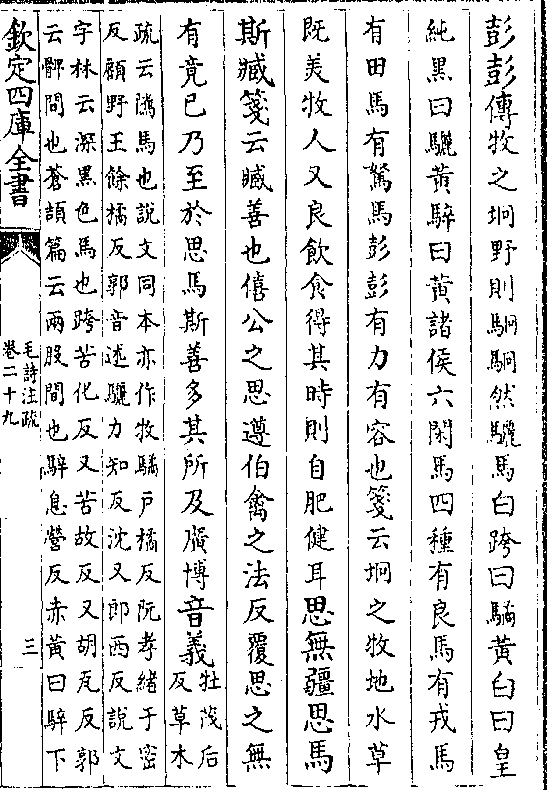 彭彭傳牧之坰野則駉駉然驪馬白跨曰驈黃白曰皇
純黑曰驪黃騂曰黃諸侯六閑馬四種有良馬有戎馬
有田馬有駑馬彭彭有力有容也箋云坰之牧地水草
既美牧人又良飲食得其時則自肥健耳思無疆思馬
斯臧箋云臧善也僖公之思遵伯禽之法反覆思之無
有竟已乃至於思馬斯善多其所及廣博音義
牡茂后
反草木
疏云隲馬也說文同本亦作牧驈戸橘反阮孝緒于密
反顧野王餘橘反郭音述驪力知反沈又郎西反說文
字林云深黑色馬也跨苦化反又苦故反又胡瓦反郭
云髀間也蒼頡篇云兩股間也騂息營反赤黃曰騂下
欽定四庫全書
毛詩注疏
卷二十九
三